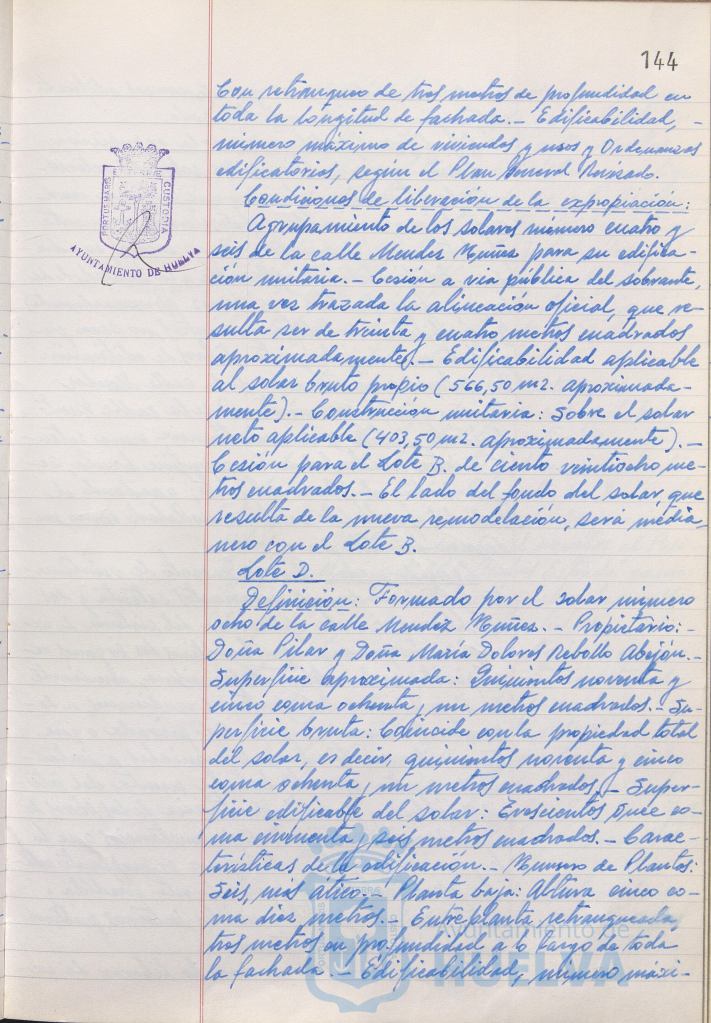 144
Con retranqueo de tres metros de profundidad en
toda la longitud de fachada.- Edificabilidad, -
número máximo de viviendas y usos y Ordenanzas
edificatorias, según el Plan General Revisado.
Condiciones de liberación de la expropiación:
Agrupamiento de los solares número cuatro y
seis de la calle Mendez Nuñez para su edifica-
ción unitaria.- Cesión a via pública del sobrante,
una vez trazada la alineación oficial, que re-
sulta ser de treinta y cuatro metros cuadrados
aproximadamente.- Edificabilidad aplicable
al solar bruto propio (566,50 m2. aproximada-
mente).- Construcción unitaria: Sobre el solar
neto aplicable (403,50 m2. aproximadamente).-
Cesión para el Lote B. de ciento veintiocho me-
tros cuadrados.- El lado del fondo del solar, que
resulta de la nueva remodelación, será media-
nero con el Lote B.
Lote D.
Definición: Formado por el solar número
ocho de la calle Mendez Nuñez.- Propietario:-
Doña Pilar y Doña María Dolores Rebollo Abejón.-
Superficie aproximada: Quinientos noventa y
cinco coma ochenta y un metros cuadrados.- Su-
perficie bruta: Coincide con la propiedad total
del solar, es decir, quinientos noventa y cinco
coma ochenta y un metros cuadrados.- Super-
ficie edificable del solar: Trescientos once co-
ma cincuenta y seis metros cuadrados.- Carac-
terísticas de la edificación.- Número de Plantas:
Seis, mas ático.- Planta baja: Altura cinco co-
ma diez metros.- Entreplanta retranqueada,
tres metros en profundidad a lo largo de toda
la fachada.- Edificabilidad, número máxi-
PORTUS MARIS CUSTODIA
AYUNTAMIENTO DE HUELVA
Ayuntamiento de
HUELVA